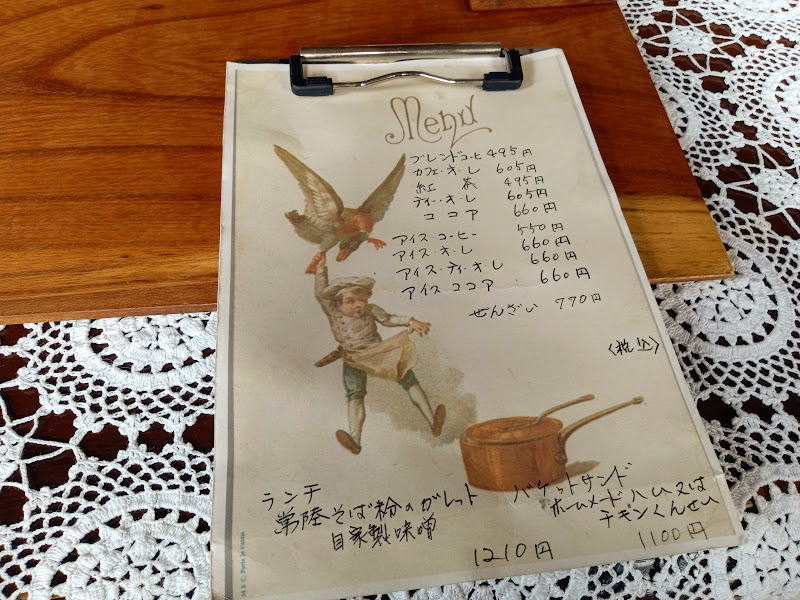 Menu
ブレンドコーヒ 495円
カフェ・オ・レ 605円
紅茶 495円
ティー・オ・レ 605円
ココア 660円
アイス・コーヒー 550円
アイス・オ・レ 660円
アイス・ティ・オ・レ 660円
アイスココア 660円
ぜんざい 770円
〈税込〉
ランチ
常陸そば粉のガレット
自家製味噌
1210円
バケットサンド
ホームメードハム又は
チキンくんせい
1100円